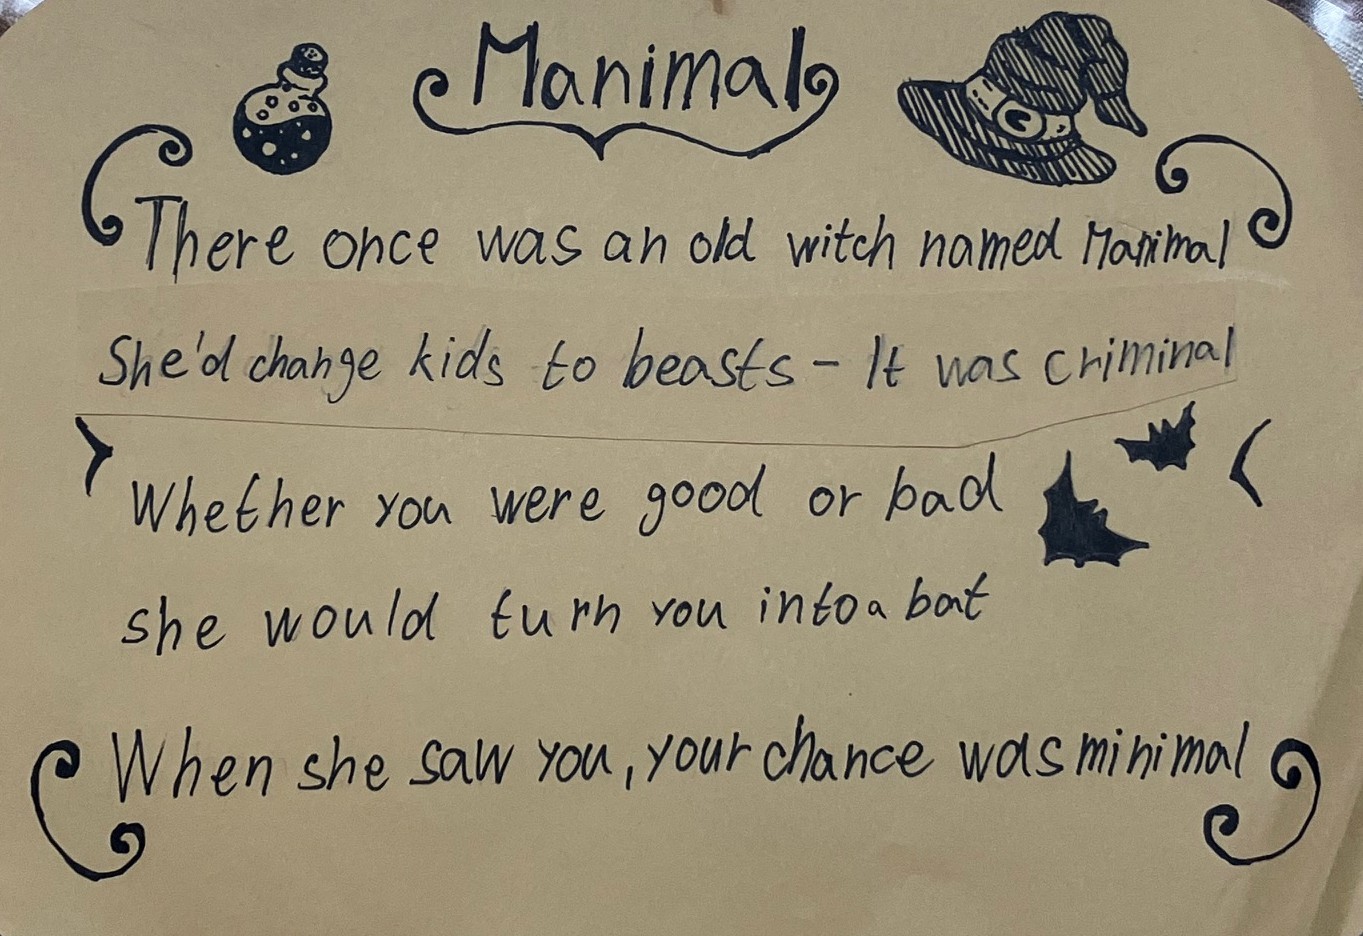 Manimal
There once was an old witch named Manimal
She'd change kids to beasts - It was criminal
Whether you were good or bad
she would turn you into a bat
When she saw you, your chance was minimal